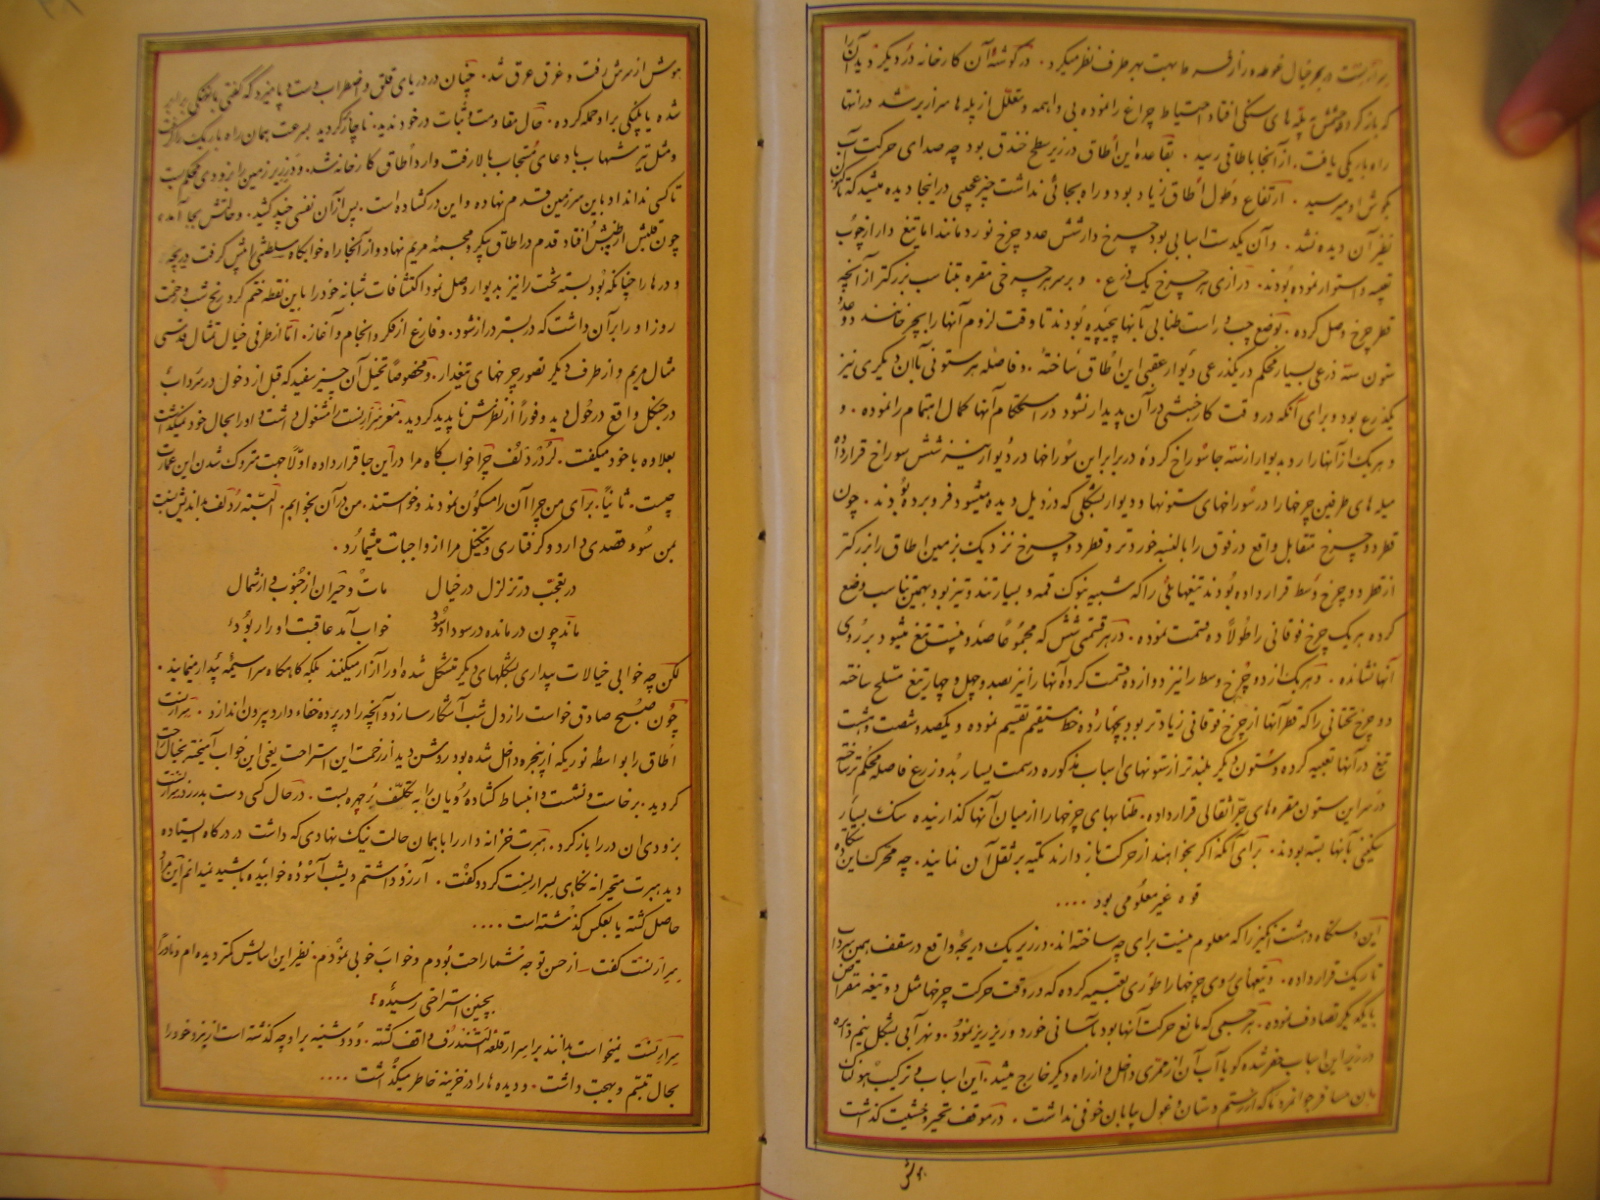 سرارنست در بحر خیال غوطه‌ور از فرط هیبت بهر طرف نظر میکرد . در گوشهٔ آن کارخانه در دیگر دید آنرا
که باز کرد چشمش به پله های سنگی افتاد احتیاط چراغ را نموده بی واهمه و تعلل از پله ها سرازیر شد در انتها
راه باریکی یافت . از آنجا باطاقی رسید . بقاعده این اطاق در زیر سطح خندق بود چه صدای حرکت آب
بگوش او میرسید . ارتفاع و طول اطاق زیاد بود و راه بجائی نداشت چیز عجیبی در اینجا دیده میشد که تاکنون
نظیر آن دیده نشد . و آن یکدست اسبابی بود چرخ دار شش عدد چرخ نورد مانند اما تیغ دار از چوب
تعبیه و استوار نموده بودند . درازی هر چرخ یک ذرع . و بر سر هر چرخی مقره بتناسب بزرگتر از آنچه
قطر چرخ وصل کرده . بوضع چپ و راست طنابی بآنها پیچیده بودند تا وقت لزوم آنها را بچرخانند دو عدد
ستون سه ذرعی بسیار محکم در یکذرعی دیوار عقبی این اطاق ساخته . و فاصله هر ستونی با آن دیگری نیز
یکذرع بود و برای آنکه در وقت کار جنبشی در آن پدیدار نشود در استحکام آنها کمال اهتمام را نموده . و
و هر یک از آنها را رو بدیوار از سه جا سوراخ کرده در برابر این سوراخها در دیوار نیز شش سوراخ قرار داده
میله های طرفین چرخها را در سوراخهای ستونها و دیوار بشکلی که در ذیل دیده میشود فرو برده بودند . چون
قطر دو چرخ متقابل واقع در فوق را بالنسبه خوردتر و قطر دو چرخ نزدیک بزمین اطاق را بزرگتر
از قطر دو چرخ وسط قرار داده بودند تیغهایی را که شبیه بنوک قمه و بسیار تند و تیز بود بهمین تناسب وضع
کرده هر یک چرخ فوقانی را طولاً ده قسمت نموده . در هر قسمتی شش که مجموعاً صد و بیست تیغ میشود بر روی
آنها نشانده . و هر یک از دو چرخ وسط را نیز دوازده قسمت کرده آنها را نیز بصد و چهل و چهار تیغ مسلح ساخته
دو چرخ تحتانی را که قطر آنها از چرخ فوقانی زیادتر بود بچهارده خط مستقیم تقسیم نموده و یکصد و شصت و هشت
تیغ در آنها تعبیه کرده دو ستون دیگر بلندتر از ستونهای اسباب مذکوره در سمت یسار بدو زرع فاصله محکم تر ساخته
در سر این ستون مقره های جر اثقالی قرار داده . طنابهای چرخها را از میان آنها گذارنیده سنک بسیار
سنگینی بآنها بسته بودند . برای آنکه اگر بخواهند از حرکت باز دارند تکیه بر ثقل آن نمایند . چه محرک این دستگاه
قوه غیر معلومی بود ....
این دستگاه دهشت انگیز را که معلوم نیست برای چه ساخته اند . در زیر یک دریچهٔ واقع در سقف همین سرداب
تاریک قرار داده . و تیغهای روی چرخها را طوری تعبیه کرده که در وقت حرکت چرخها مثل دو تیغه مقراض
با یکدیگر تصادف نموده . هر جسمی که مانع حرکت آنها بود بآسانی خورد و ریز ریز نمود . و نهر آبی بشکل نیم دایره
در زیر این اسباب حفر شده گویا آب آن از ممری داخل و از راه دیگر خارج میشد . این اسباب و ترکیب هولناک
بآن مسافر جوانمرد ناکه از رستم دستان و غول بیابان خوفی نداشت . در موقف تحیر و خشیت گذاشت
هوش
هوش از سرش رفت و غرق عرق شد . چنان در دریای قلق و اضطراب دست و پا میزد که گفتی با نهنگی
شده یا پلنگی بر او حمله کرده . حال مقاومت و ثبات در خود ندید . ناچار گردید بسرعت همان راه باریک را گرفت
و مثل تیر شهاب یا دعای مستجاب بالا رفت وارد اطاق کارخانه شد . و در زیر زمین را زودی محکم بست
تا کسی نداند او باین سرزمین قدم نهاده و این در گشاده است . پس از آن نفسی چند کشید . و حالتش بجا آمد
چون قلبش از طپش افتاد قدم در اطاق پیکر و مجسمه مریم نهاد و از آنجا راه خوابگاه سلطنتی را پیش گرفت دریچه
و درها را چنانکه بود بسته تخت را نیز بدیوار وصل نمود اکتشافات شبانه خود را باین نقطه ختم کرد رنج شب و زحمت
روز او را بر آن داشت که در بستر دراز شود . و فارغ از فکر و انجام و آغاز . اما از طرفی خیال تمثال قدسی
مثال مریم و از طرف دیگر تصور چرخهای تیغدار . و مخصوصاً تخیل آن چیز سفید که قبل از دخول در سرداب
در جنگل واقع در حول دید و فوراً از نظرش ناپدید گردید . مغز سرارنست را مشغول داشت و او را بحال خود نمیگذاشت
بعلاوه با خود میگفت . لرد ردلف چرا خوابگاه مرا در این جا قرار داده اولاً جهت متروک شدن این عمارت
چیست . ثانیاً . برای من چرا آن را مسکون نمودند و خواستند . من در آن بخوابم . البته ردلف بداندیش نسبت
بمن سوء قصدی دارد و گرفتاری و تنکیل مرا از واجبات میشمارد .
در تعجب در تزلزل در خیال      مات و حیران از جنوب و از شمال
ماند چون درمانده در سودا و سود      خواب آمد عاقبت او را ربود
لکن چه خوابی خیالات بیداری بشکلهای دیگر متشکل شده او را آزار میکنند بلکه گاه گاه سراسیمه بیدار مینمایند .
چون صبح صادق خواست راز دل شب آشکار سازد و آنچه را در پرده خفاء دارد بیرون اندازد . سرارنست
اطاق را بواسطه نوریکه از پنجره داخل شده بود روشن دید از زحمت این استراحت یعنی این خواب آمیخته بخیال راحت
گردید . برخاست و نشست و انبساط گشاده رویان را به تکلف بر چهره بست . در حال کسی دست بدر زد سرارنست
بزودی آن در را باز کرد . هبرت خزانه دار را با همان حالت نیک نهادی که داشت در درگاه ایستاده
دید هبرت متحیرانه نگاهی بسرارنست کرد و گفت . آرزو داشتم دیشب آسوده خوابیده باشید نمیدانم این آرزو
حاصل گشته یا بعکس گذشته است ....
سرارنست گفت . از حسن توجه شما راحت بودم و خواب خوبی نمودم . نظیر این آسایش کمتر دیده ام و نادراً
بچنین استراحتی رسیده ؛
سرارنست نمیخواست بدانند بر اسرار قلعه آلتندرف واقف گشته . و دوشینه بر او چه گذشته است از اینرو خود را
بحال تبسم و بهجت داشت . و دیده ها را در خزینه خاطر میگذاشت ....